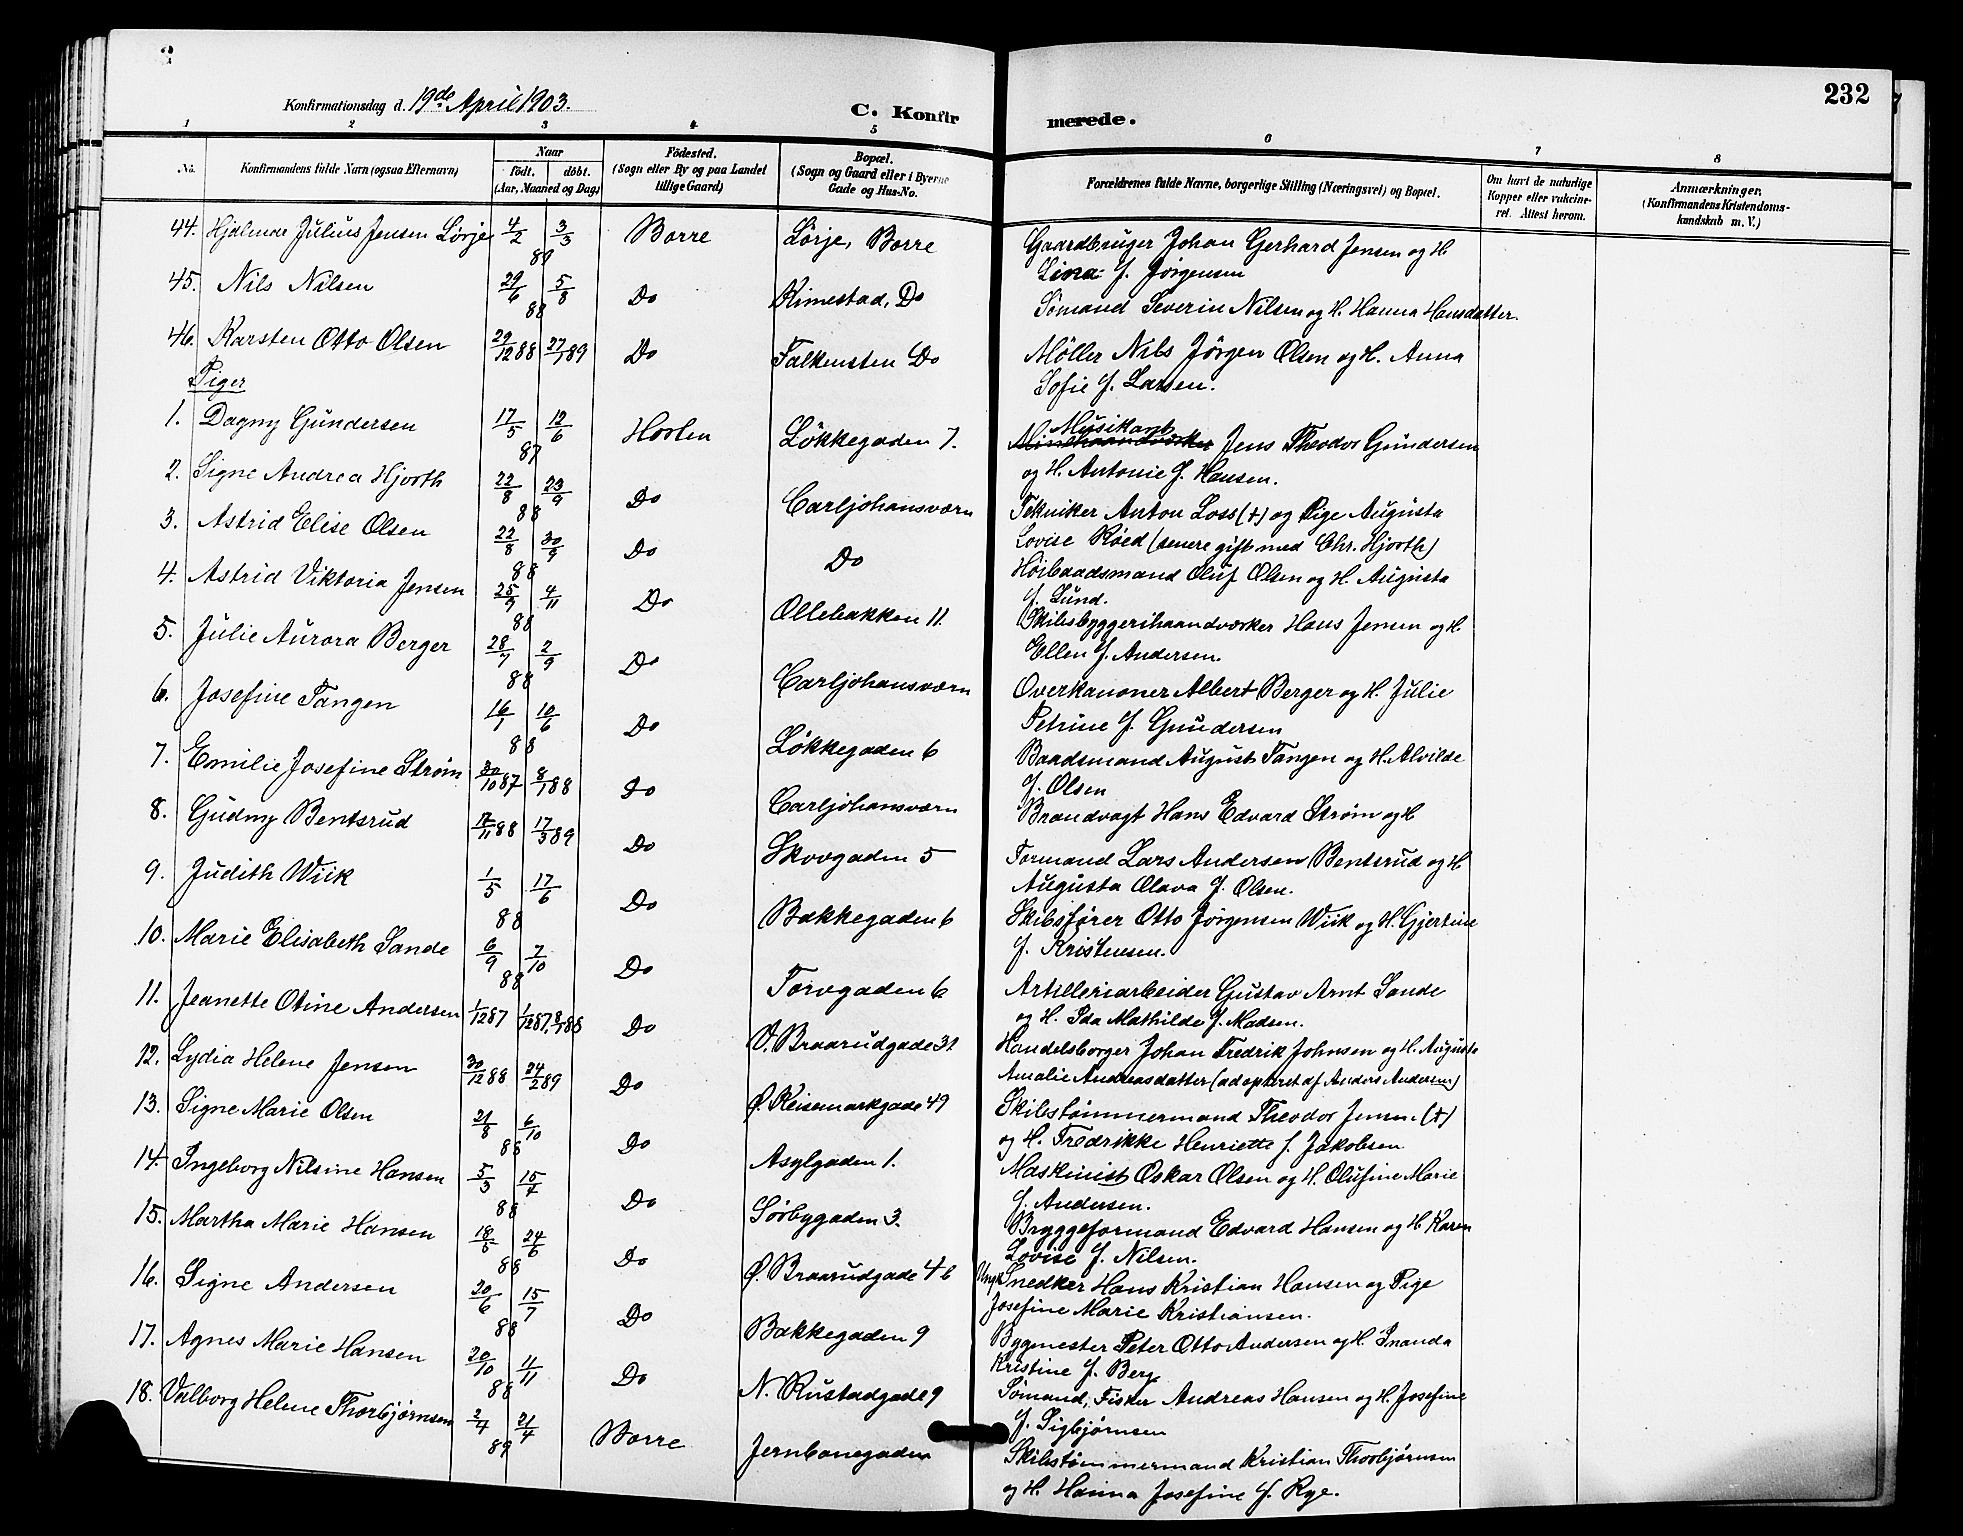 232
Konfirmationsdag d. 19de April 1903.
C. Konfirmerede.
1 2 3 4 5 6 7 8
No. Konfirmandens fulde Navn (ogsaa Efternavn) Naar født. døbt. (Aar, Maaned og Dag) Fødested. (Sogn eller By og paa Landet tillige Gaard) Bopæl. (Sogn og Gaard eller i Byerne Gade og Hus-No. Forældrenes fulde Navne, borgerlige Stilling (Næringsvei) og Bopæl. Om havt de naturlige Kopper eller vakcineret. Attest herom. Anmærkninger, (Konfirmandens Kristendomskundskab m. V.)
44. Hjalmar Julius Jensen Lørje 4/2 3/3 89 Borre Lørje, Borre Gaardbruger Johan Gerhard Jensen og H.
Lina f. Jørgensen
45. Nils Nilsen 29/6 5/8 88 Do Kimestad, Do Sømand Severin Nilsen og H. Hanna Hansdatter.
46. Karsten Otto Olsen 29/12 88 27/1 89 Do Falkensten Do Møller Nils Jörgen Olsen og H. Anna
Sofie f. Larsen.
Piger
1. Dagny Gundersen 17/5 12/6 87 Horten Løkkegaden 7. Musikant Jens Theodor Gundersen
og H. Antonie f. Hansen.
2. Signe Andrea Hjorth 22/8 23/9 88 Do Carljohansværn Tekniker Anton Loss (+) og Pige Augusta
Lovise Røed (senere gift med Chr. Hjorth)
3. Astrid Elise Olsen 22/8 30/9 88 Do Do Høibaadsmand Oluf Olsen og H. Augusta
f. Lund.
4. Astrid Viktoria Jensen 25/9 4/11 88 Do Ollebakken 11. Skibsbyggerihaandværker Hans Jensen og H.
Ellen f. Andersen.
5. Julie Aurora Berger 28/7 2/9 88 Do Carljohansværn Overkanoner Albert Berger og H. Julie
Petrine f. Gundersen
6. Josefine Tangen 16/1 10/6 88 Do Løkkegaden 6 Baadsmand August Tangen og H. Alvilde
f. Olsen
7. Emilie Josefine Strøm 30/10 87 8/1 88 Do Carljohansværn Brandvagt Hans Edvard Strøm og H
8. Gudny Bentsrud 17/11 88 17/3 89 Do Skovgaden 5 Formand Lars Andersen Bentsrud og H
Augusta Olava f. Olsen.
9. Judith Wiik 1/5 17/6 88 Do Bakkegaden 6 Skibsfører Otto Jørgensen Wiik og H. Gjertine
f. Kristensen.
10. Marie Elisabeth Sande 6/9 7/10 88 Do Torvgaden 6 Artilleriarbeider Gustav Arnt Sande
og H. Ida Mathilde f. Madsen.
11. Jeanette Otine Andersen 1/12 87 1/12 87, 8/1 88 Do V. Braarudgade 31 Handelsborger Johan Fredrik Johnsen og H. Augusta
Amalie Andreasdatter (adopteret af Anders Andersen)
12. Lydia Helene Jensen 30/12 88 24/2 89 Do Ø. Keisemarkgade 49 Skibstømmermand Theodor Jensen (+)
og H. Fredrikke Henriette f. Jakobsen
13. Signe Marie Olsen 21/8 6/10 88 Do Asylgaden 1. Maskinist Oskar Olsen og H. Olufine Marie
f. Andersen.
14. Ingeborg Nilsine Hansen 5/3 15/4 88 Do Sørbygaden 3. Bryggeformand Edvard Hansen og H. Karen
Lovise f. Nilsen.
15. Martha Marie Hansen 18/5 24/6 88 Do Ø. Braarudgade 46 Ungk. Snedker Hans Kristian Hansen og Pige
Josefine Marie Kristiansen.
16. Signe Andersen 20/6 15/7 88 Do Bakkegaden 9 Bygmester Peter Otto Andersen og H. Inanda
Kristine f. Berg
17. Agnes Marie Hansen 20/10 11/11 88 Do N. Rustadgade 9 Sømand, Fisker Andreas Hansen og H. Josefine
f. Sigbjørnsen
18. Valborg Helene Thorbjørnsen 2/4 21/4 89 Borre Jernbanegaden Skibstømmermand Kristian Thorbjørnsen
og H. Hanna Josefine f. Rye.